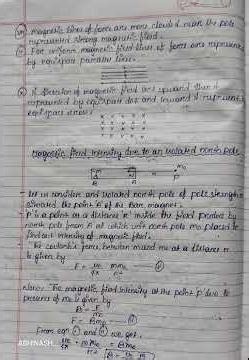 (iii) Magnetic lines of force are more crowded near the pole
represented strong magnetic field.
(iv) For uniform magnetic field lines of force are represented
by equispace parallel lines.
(v) If direction of magnetic field is upward then it
represented by equispace dots and inward it represent
equispace
x x x x x
Magnetic field intensity due to an isolated north pole
B A P
m₀
- Let us consider and isolated north pole of pole strength
situated the point A of the Bar magnet.
'P' is a point on a distance 'r' inside the field produced by
north pole from A at which unit north pole m₀ placed to
find out intensity of magnetic field.
- The coulomb's force between m and m₀ at a distance r
is given by
F = μ₀/4π mm₀/r²
Now, The magnetic field intensity at the point 'p' due to
presence of m₀ is given by
B = F/m₀
F = Bm₀
From eqn (i) and (ii) we get,
μ₀/4π = Bm₀
ABHINASH